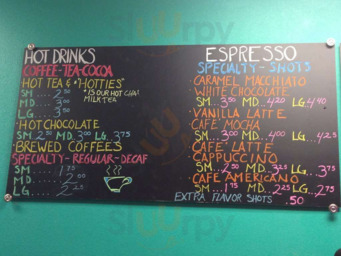 HOT DRINKS
COFFEE-TEA-COCOA
HOT TEA & "HOTTIES"
SM.... 2.50 * IS OUR HOT CHAI
MD.... 3.00 MILK TEA
LG.... 3.50
HOT CHOCOLATE
SM. 2.50 MD. 3.00 LG. 3.75
BREWED COFFEES
SPECIALTY-REGULAR-DECAF
SM..... 1.75
MD...... 2.00
LG..... 2.25
ESPRESSO
SPECIALTY-SHOTS
CARAMEL MACCHIATO
WHITE CHOCOLATE
SM... 3.50 MD... 4.20 LG. 4.40
VANILLA LATTE
CAFE MOCHA
SM... 3.00 MD... 4.00 LG... 4.25
CAFE' LATTE
CAPPUCCINO
SM... 2.50 MD... 3.25 LG... 3.75
CAFE AMERICANO
SM... 1.75 MD... 2.25 LG... 2.75
EXTRA FLAVOR SHOTS .50